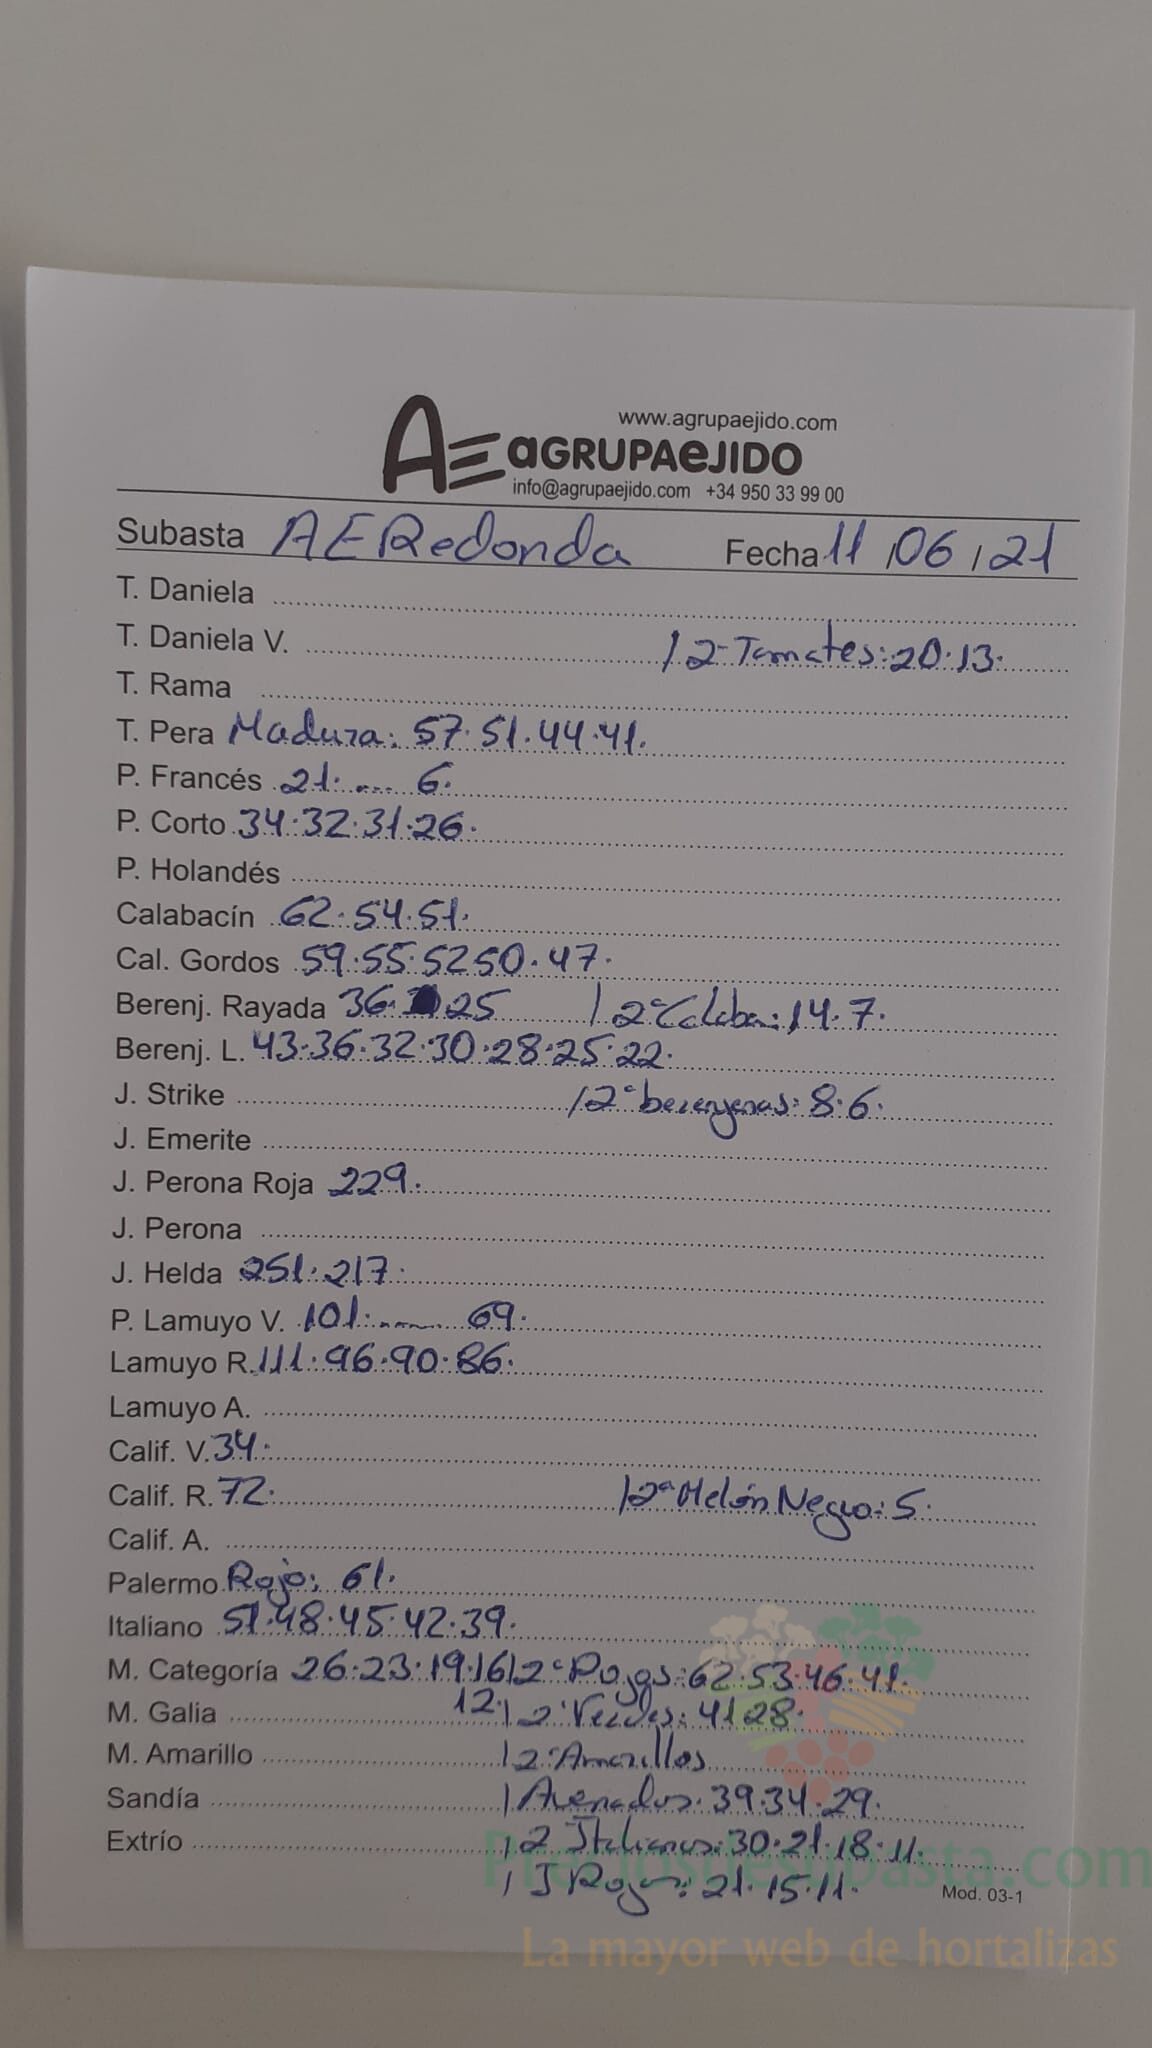 www.agrupaejido.com
AE aGRUPAeJIDO
info@agrupaejido.com +34 950 33 99 00
Subasta AERedonda Fecha 11/06/21
T. Daniela
T. Daniela V. / 2ª Tomates: 20. 13.
T. Rama
T. Pera Madura: 57. 51. 44. 41.
P. Francés 21. .... 6.
P. Corto 34. 32. 31. 26.
P. Holandés
Calabacín 62. 54. 51.
Cal. Gordos 59. 55. 52 50. 47.
Berenj. Rayada 36. 25 / 2ª Calaba: 14. 7.
Berenj. L. 43. 36. 32. 30. 28. 25. 22.
J. Strike / 2ª berenjenas: 8. 6.
J. Emerite
J. Perona Roja 229.
J. Perona
J. Helda 251. 217.
P. Lamuyo V. 101. ........ 69.
Lamuyo R. 111. 96. 90. 86.
Lamuyo A.
Calif. V. 34.
Calif. R. 72. / 2ª Melón Negro: 5.
Calif. A.
Palermo Rojo: 61.
Italiano 51. 48. 45. 42. 39.
M. Categoría 26. 23. 19. 16 / 2ª Rojas: 62. 53. 46. 41.
M. Galia 12. / 2ª Verdes: 41 28.
M. Amarillo / 2ª Amarillos
Sandía / Asenados. 39. 34. 29.
Extrío / 2 Italianos: 30. 21. 18. 11.
/ J Rojas: 21. 15. 11.
Mod. 03-1
Preciosdesubasta.com
La mayor web de hortalizas